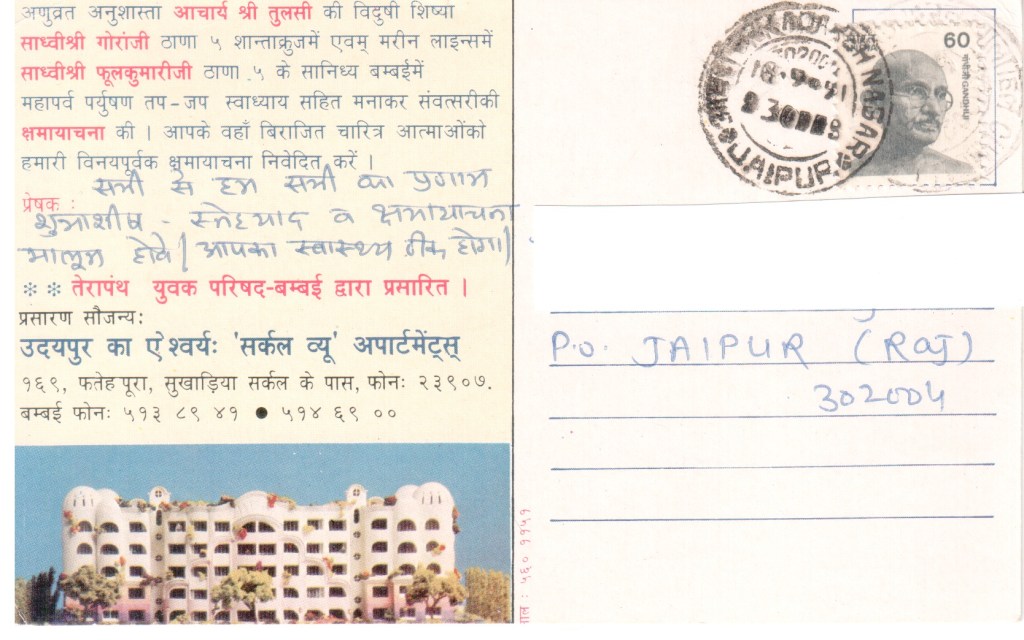 अणुव्रत अनुशास्ता आचार्य श्री तुलसी की विदुषी शिष्या
साध्वीश्री गोरांजी ठाणा ५ शान्ताक्रुजमें एवम् मरीन लाइन्समें
साध्वीश्री फूलकुमारीजी ठाणा ५ के सानिध्य बम्बईमें
महापर्व पर्युषण तप-जप स्वाध्याय सहित मनाकर संवत्सरीकी
क्षमायाचना की । आपके वहाँ बिराजित चारित्र आत्माओंको
हमारी विनयपूर्वक क्षमायाचना निवेदित करें ।
सभी से हम सभी का प्रणाम
प्रेषक :
शुभाशीष - स्नेहयाद व क्षमायाचना
मालूम होवे | आपका स्वास्थ्य ठीक होगा |
** तेरापंथ युवक परिषद-बम्बई द्वारा प्रसारित ।
प्रसारण सौजन्य:
उदयपुर का ऐश्वर्य: 'सर्कल व्यू' अपार्टमेंट्स्
१६९, फतेहपूरा, सुखाड़िया सर्कल के पास, फोन: २३९०७.
बम्बई फोन: ५१३ ८९ ४१ ● ५१४ ६९ ००
60
गांधी GANDHI
NAGAR
JAIPUR
302004
P.O. JAIPUR (RAJ)
302004
५६० ११५१